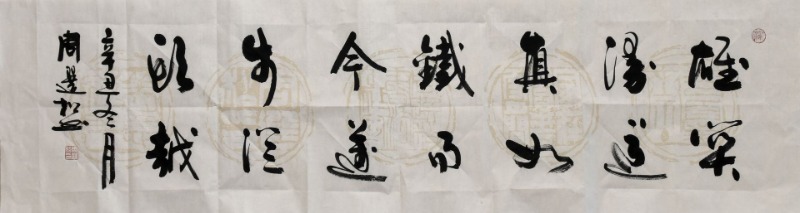 雄關
漫道
真如
鐵而
今邁
步從
頭越
辛丑冬月
周